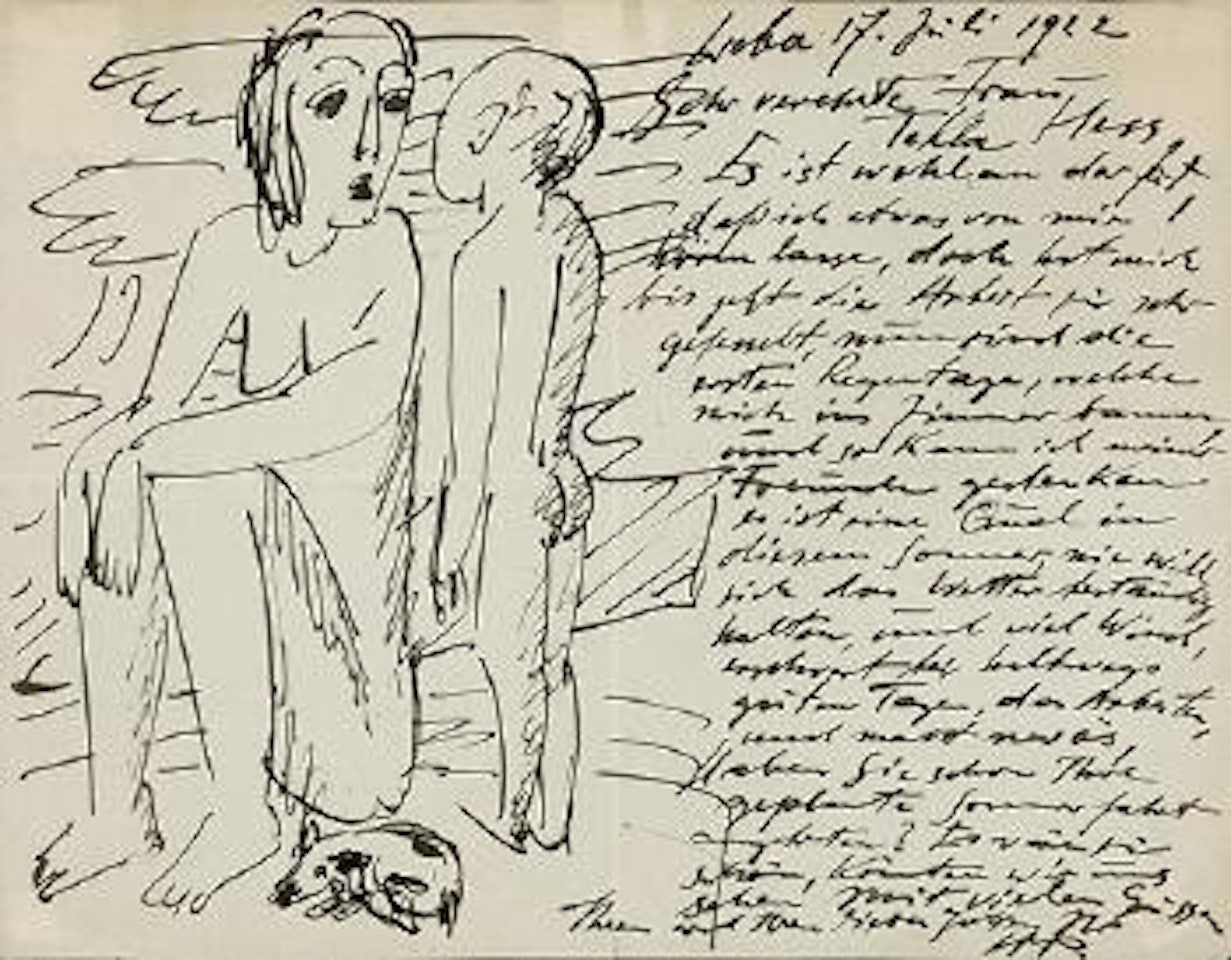 Leba 17. Juli 1922
Sehr verehrte Frau
Tekla Hess,
Es ist wohl an der Zeit,
daß ich etwas von mir
hören lasse, doch hat mich
bis jetzt die Arbeit für sehr
gefesselt, nun sind die
ersten Regentage, welche
mich ins Zimmer bannen
und so kann ich meiner
Freunde gedenken
es ist eine Qual in
diesem Sommer, nie will
sich das Wetter beständig
halten, und viel Wind,
erschwert bei halbwegs
guten Tagen, das Arbeiten
und macht nervös
Haben Sie schon Ihre
geplante Sommerfahrt
angetreten? Es wäre
schön, könnten wir uns
sehen Mit vielen Grüssen
Ihnen und Ihrem lieben